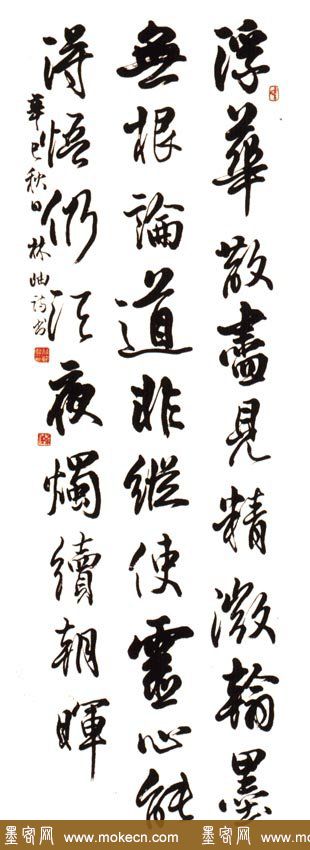 浮華散盡見精微翰墨
無根論道非縱使靈心能
得悟仍須夜燭續朝暉
辛巳秋日林岫詩書
墨客网 www.mokecn.com 墨客网 www.mokecn.com